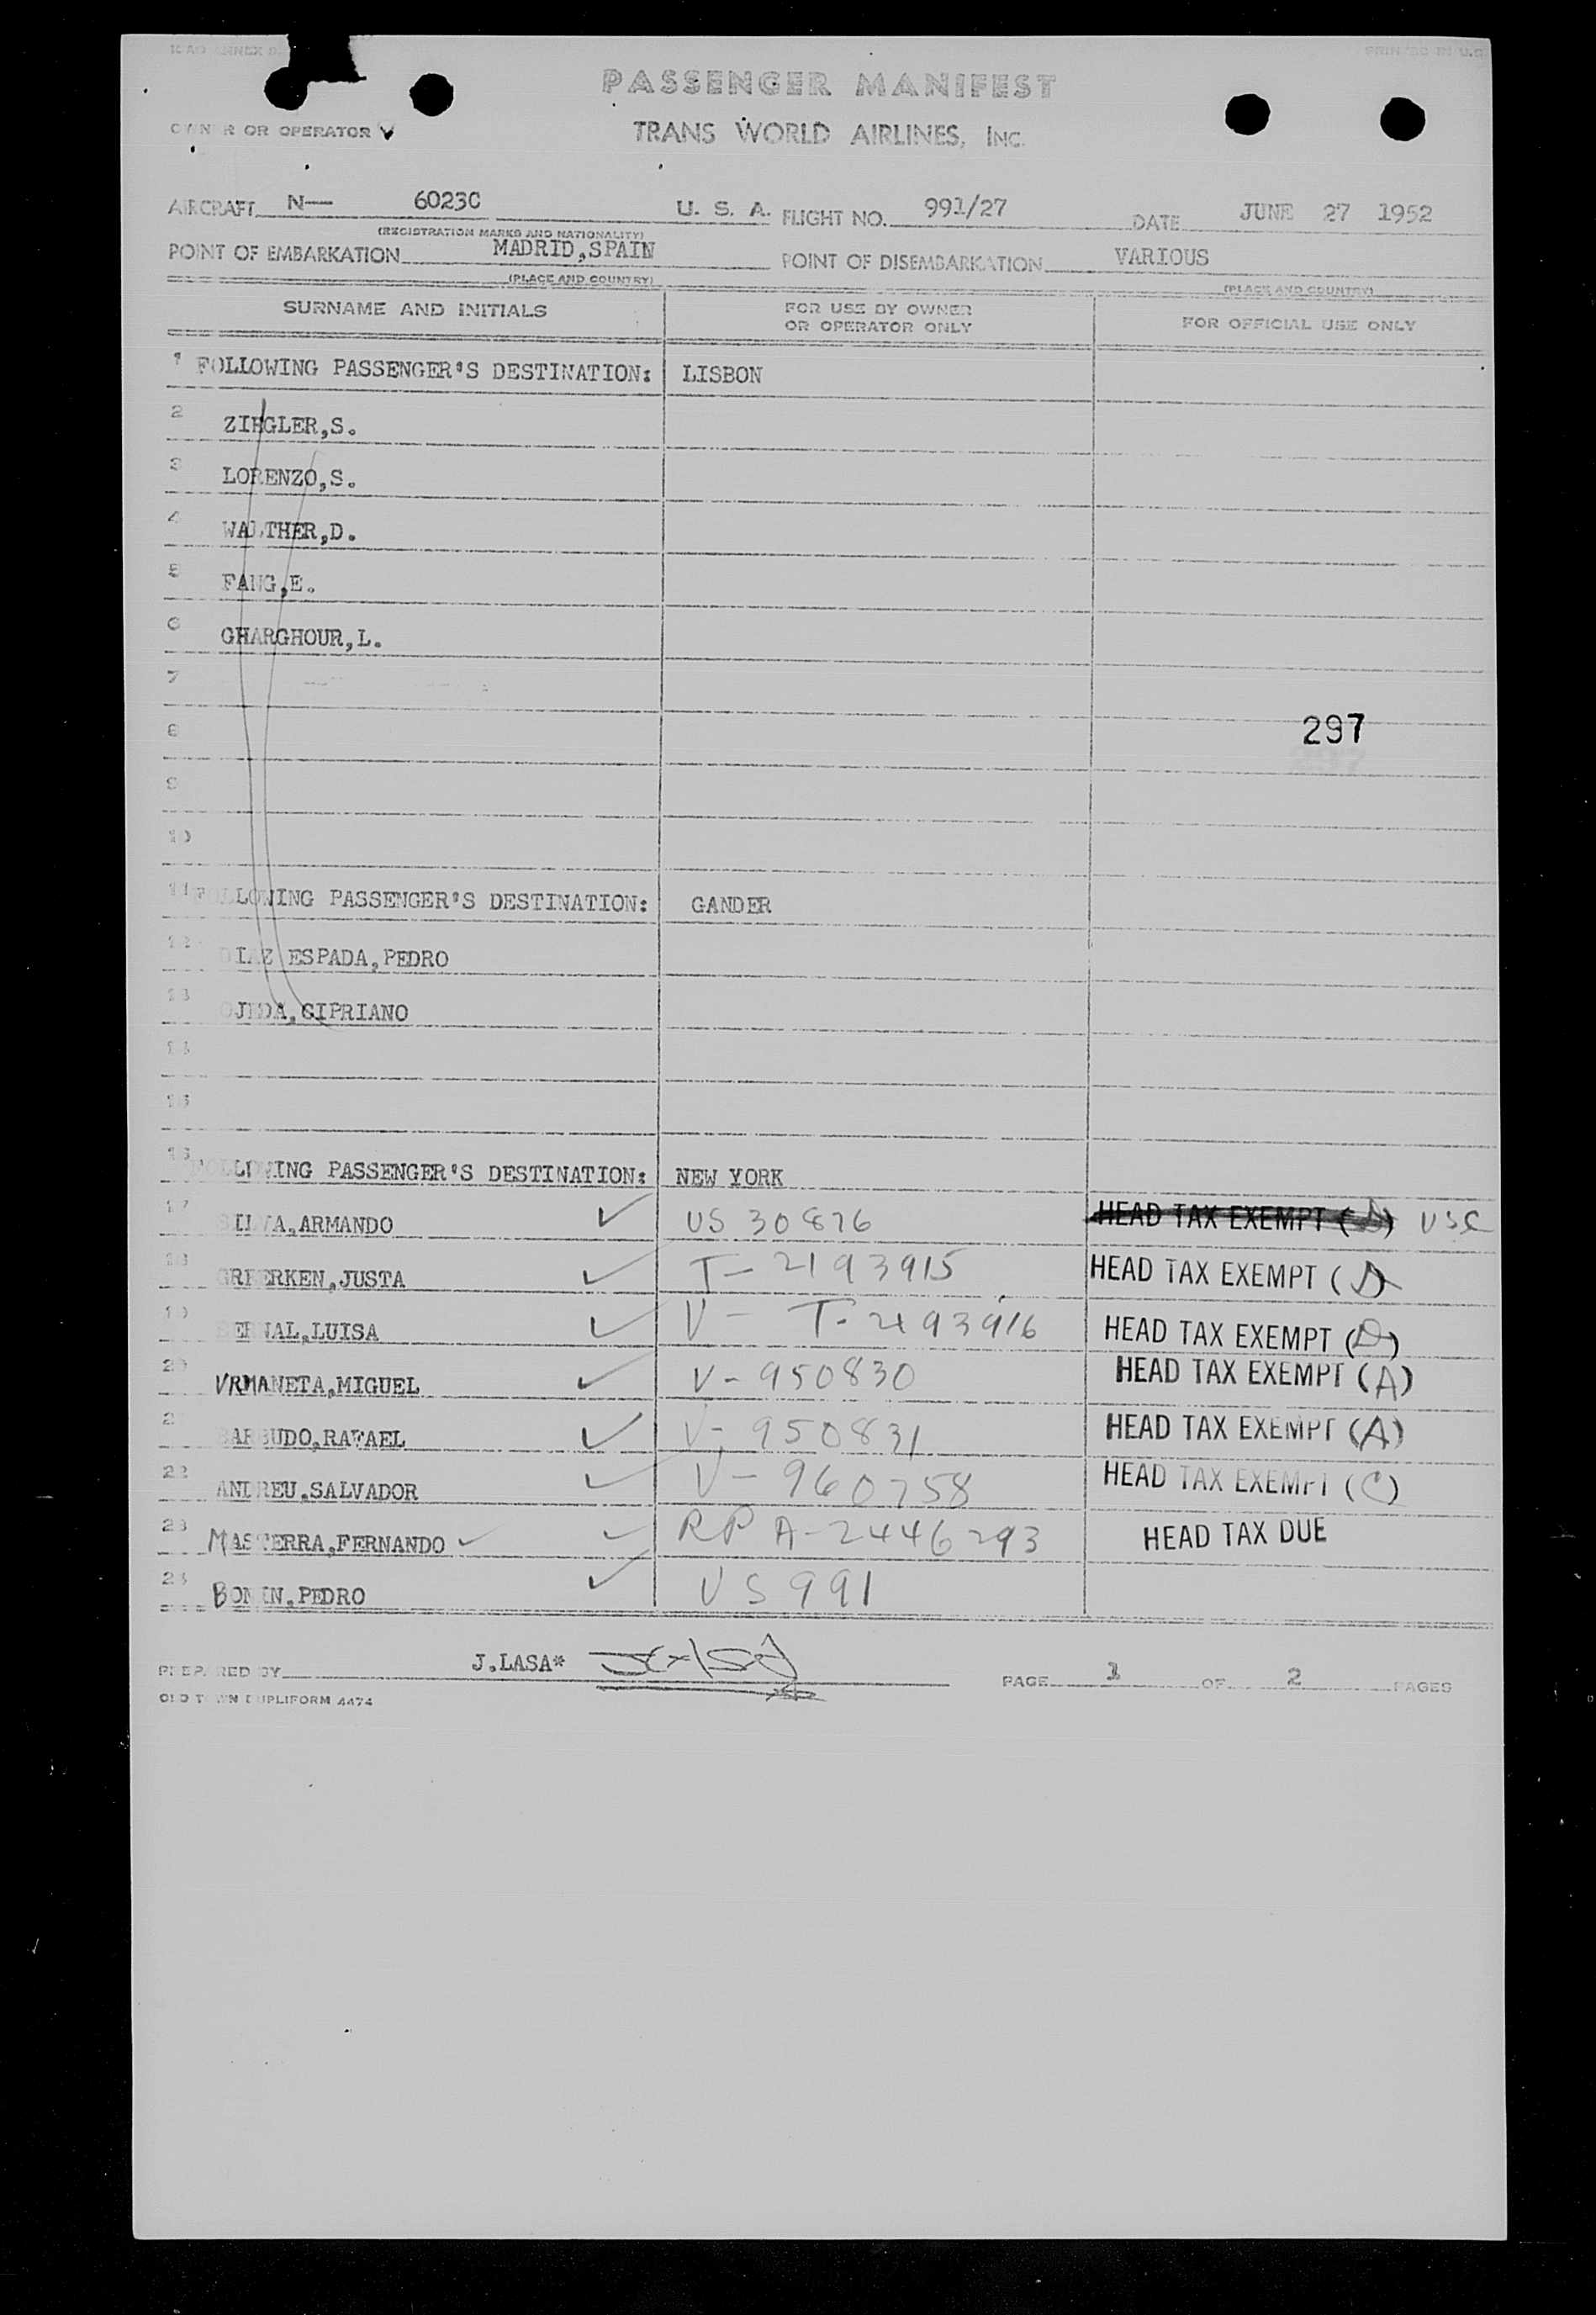 ICAO ANNEX 9
PRINTED IN U.S
PASSENGER MANIFEST
OWNER OR OPERATOR
TRANS WORLD AIRLINES, INC.
AIRCRAFT N— 6023C U. S. A. FLIGHT NO. 991/27 DATE JUNE 27 1952
(REGISTRATION MARKS AND NATIONALITY)
POINT OF EMBARKATION MADRID,SPAIN POINT OF DISEMBARKATION VARIOUS
(PLACE AND COUNTRY) (PLACE AND COUNTRY)
SURNAME AND INITIALS FOR USE BY OWNER OR OPERATOR ONLY FOR OFFICIAL USE ONLY
1 FOLLOWING PASSENGER'S DESTINATION: LISBON
2 ZIEGLER,S.
3 LORENZO,S.
4 WALTHER,D.
5 FANG,E.
6 GHARGHOUR,L.
7
8 297
9
10
11 FOLLOWING PASSENGER'S DESTINATION: GANDER
12 DIAZ ESPADA,PEDRO
13 OJEDA,CIPRIANO
14
15
16 FOLLOWING PASSENGER'S DESTINATION: NEW YORK
17 SILVA,ARMANDO ✓ US 30876 HEAD TAX EXEMPT USC
18 JUSTA ✓ T-2193915 HEAD TAX EXEMPT (D)
19 BERNAL,LUISA ✓ V- T-2193916 HEAD TAX EXEMPT (D)
20 VRMANETA,MIGUEL ✓ V-950830 HEAD TAX EXEMPT (A)
21 BARBUDO,RAFAEL ✓ V-950831 HEAD TAX EXEMPT (A)
22 ANDREU,SALVADOR ✓ V-960758 HEAD TAX EXEMPT (C)
23 MASFERRA,FERNANDO ✓ ✓ RP A-2446293 HEAD TAX DUE
24 PEDRO ✓ US 991
PREPARED BY J.LASA* PAGE 1 OF 2 PAGES
OLD TOWN DUPLIFORM 4474